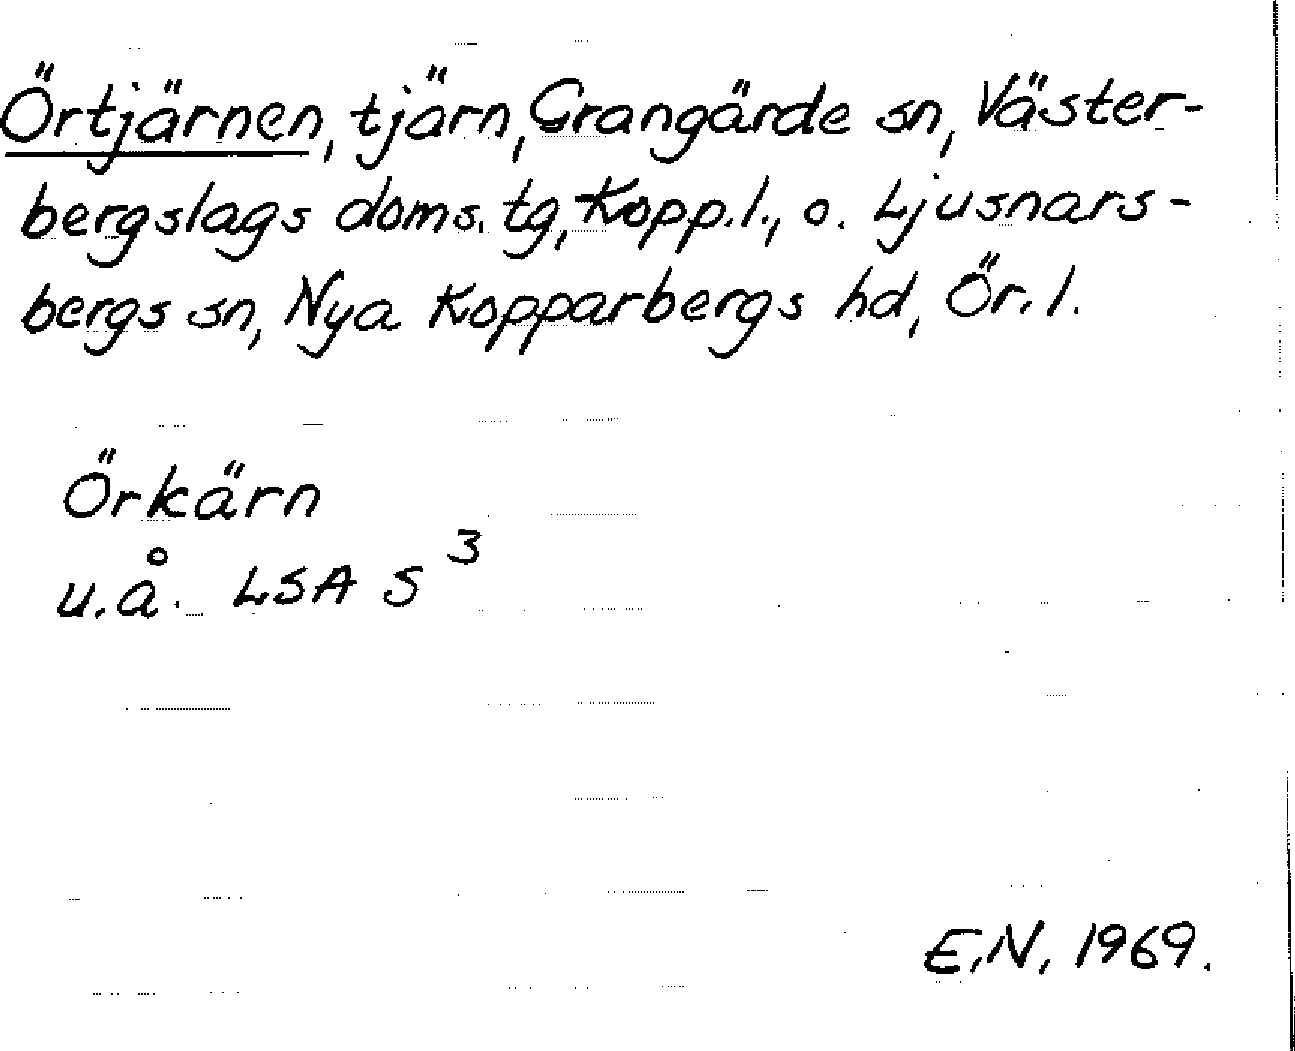 Örtjärnen, tjärn, Grangärde sn, Väster-
bergslags doms. tg, Kopp.l., o. Ljusnars-
bergs sn, Nya Kopparbergs hd, Ör.l.
Örkärn
u.å. LSA S 3
E.N. 1969.